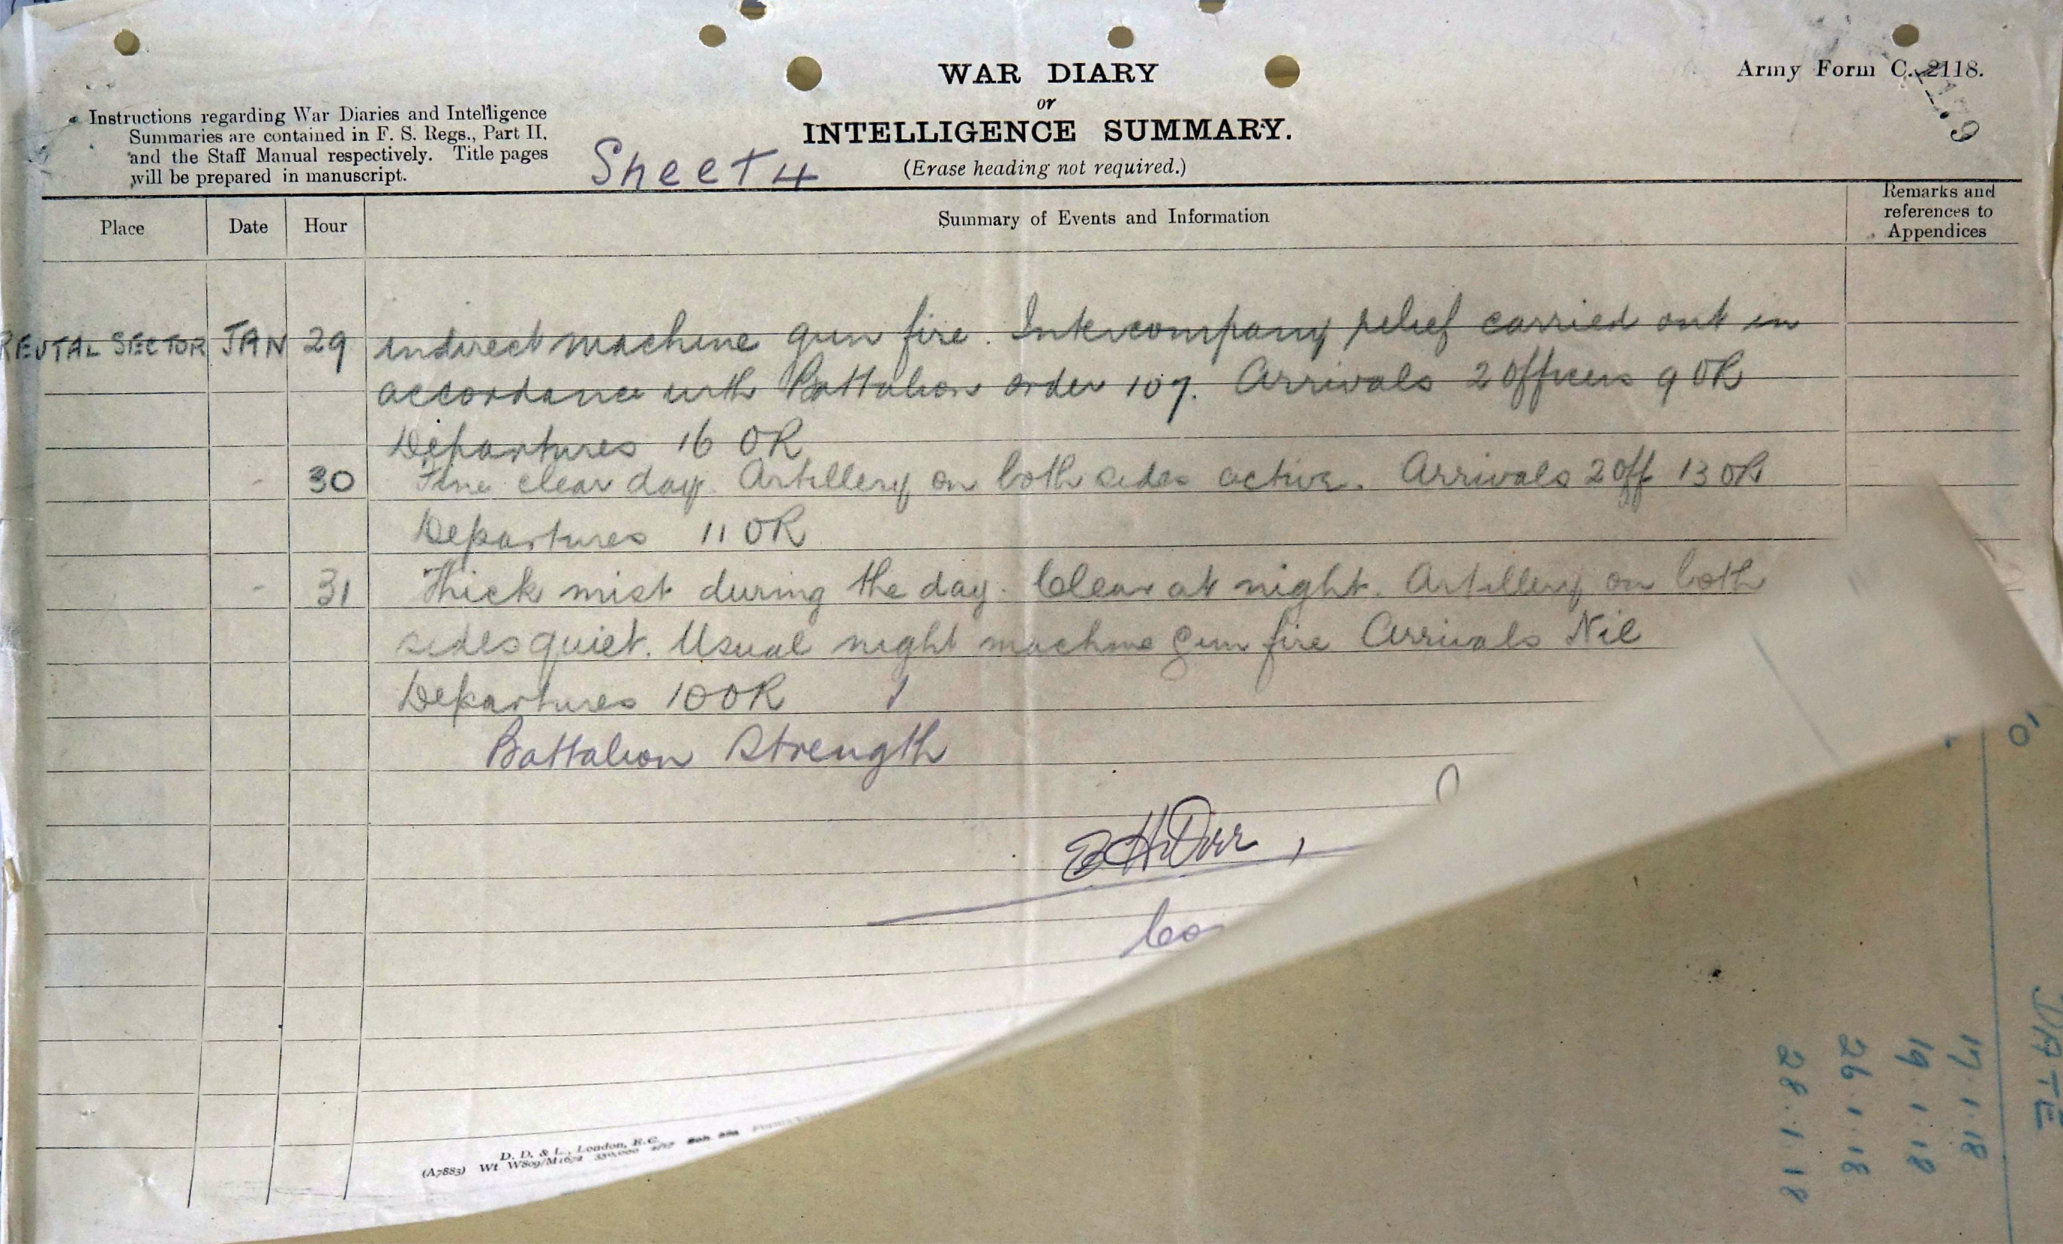 WAR DIARY
or
INTELLIGENCE SUMMARY.
(Erase heading not required.)
Army Form C. 2118.
Instructions regarding War Diaries and Intelligence
Summaries are contained in F. S. Regs., Part II.
and the Staff Manual respectively. Title pages
will be prepared in manuscript.
SheeT 4
Place Date Hour Summary of Events and Information Remarks and references to Appendices
SECTOR JAN 29 indirect machine gun fire. Intercompany relief carried out in
accordance with Battalion order 107. Arrivals 2 Officers 9 OR
Departures 16 OR
- 30 Fine clear day. Artillery on both sides active. Arrivals 2 Off 13 OR
Departures 11 OR
- 31 Thick mist during the day. Clear at night. Artillery on both
sides quiet. Usual night machine gun fire Arrivals Nil
Departures 10 OR
Battalion Strength
D. D. & L., London, E.C.
(A7883) Wt. W809/M1672 350,000
10
DATE
17.1.18
19.1.18
26.1.18
28.1.18